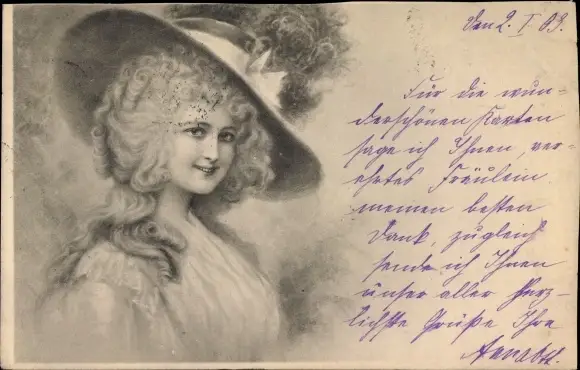 den 2. I 03.
Für die wun-
derschönen Karten
sage ich Ihnen, ver-
ehrtes Fräulein
meinen besten
Dank, zugleich
sende ich Ihnen
unser aller herz-
lichste Grüße Ihre